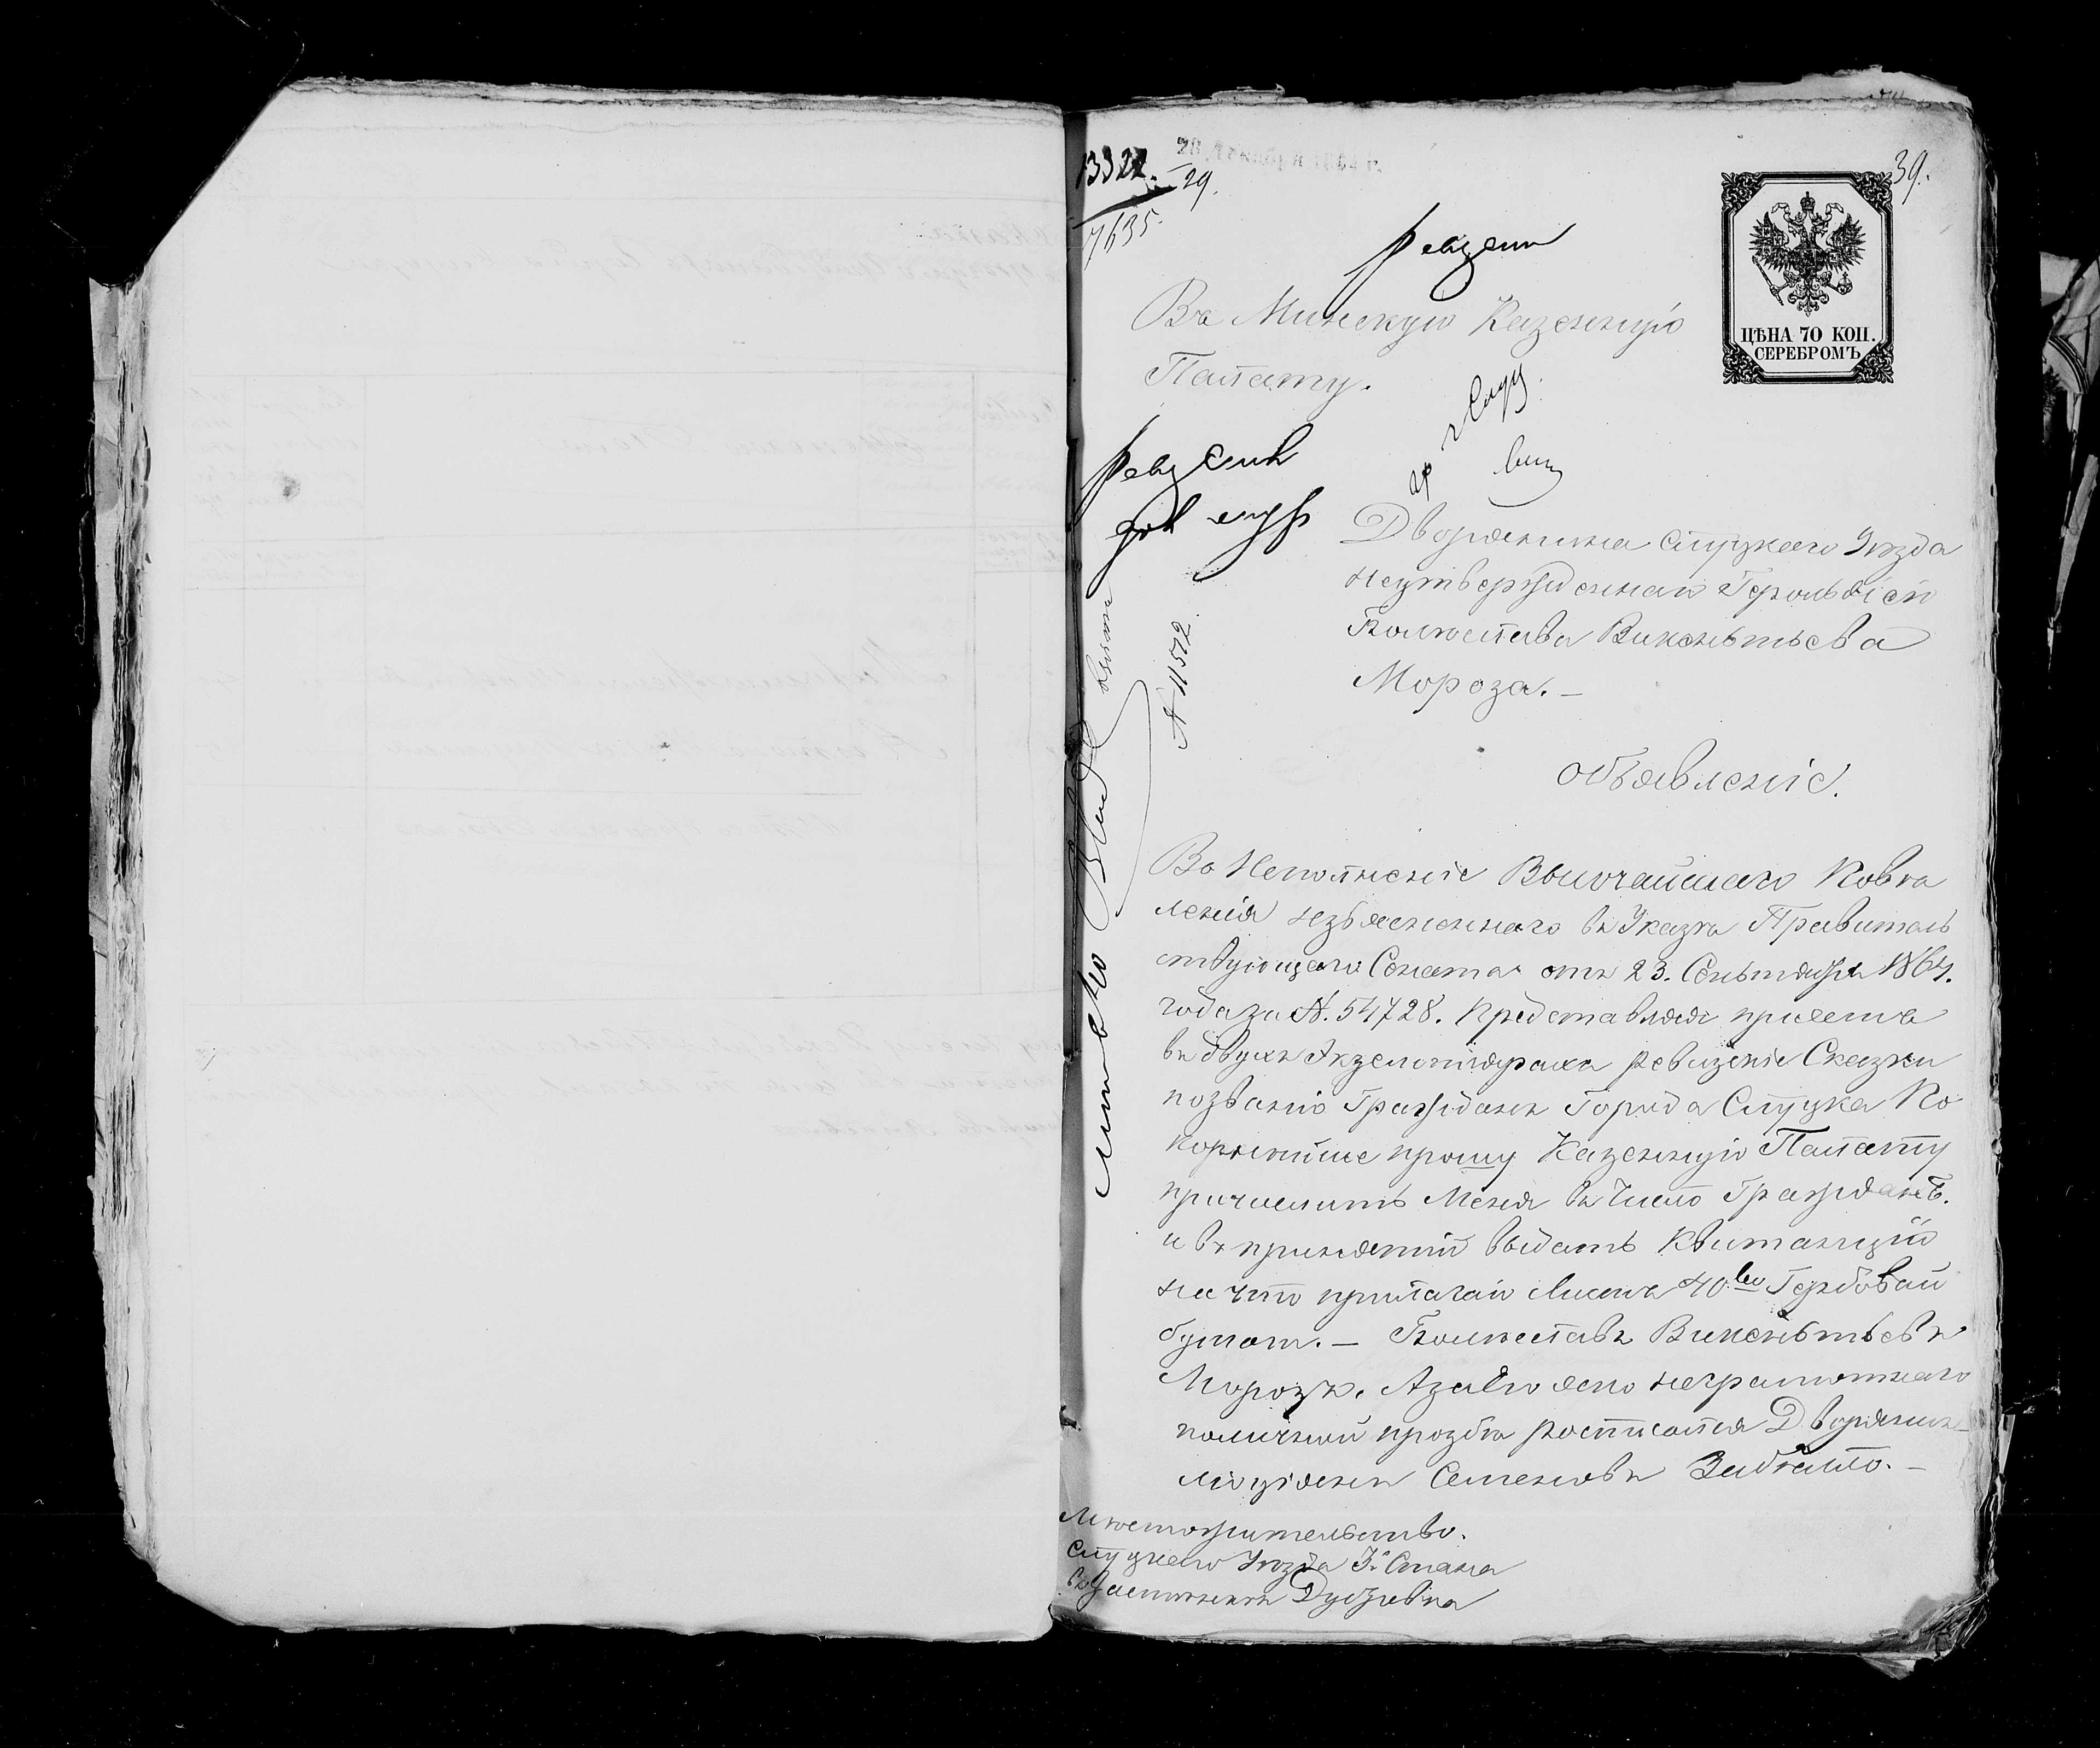 28 Декабря 1864 г.
13322. 29.
7635.
39.
ЦѢНА 70 КОП.
СЕРЕБРОМЪ
Въ Минскую Казенную
Палату.
Дворянина Слуцкаго Уѣзда
неутвержденнаго Герольдіей
Болеслава Викентьева
Мороза. —
№ 11572.
объявленіе.
Во Исполненіе Высочайшаго Повѣ
ленія изъясненнаго въ Указѣ Правитель
ствующаго Сената отъ 23. Сентября 1864.
года за №. 54728. Представляя присемъ
въ двухъ Экземплярахъ ревизскіе Сказки
позванію Гражданъ Города Слуцка По
корнѣйше прошу Казенную Палату
причислить Меня въ Число Гражданъ.
и въ принятіи выдать Квитанцій
на что прилагаю Листъ 40 ко Гербовой
бумаги. — Болеславъ Викентьевъ
Морозъ. А за его яко неграмотнаго
поличной прозбѣ росписался Дворянинъ
Люціянъ Семеновъ
Мѣстожительство.
Слуцкаго Уѣзда 3. Стана
въ Застѣнкѣ